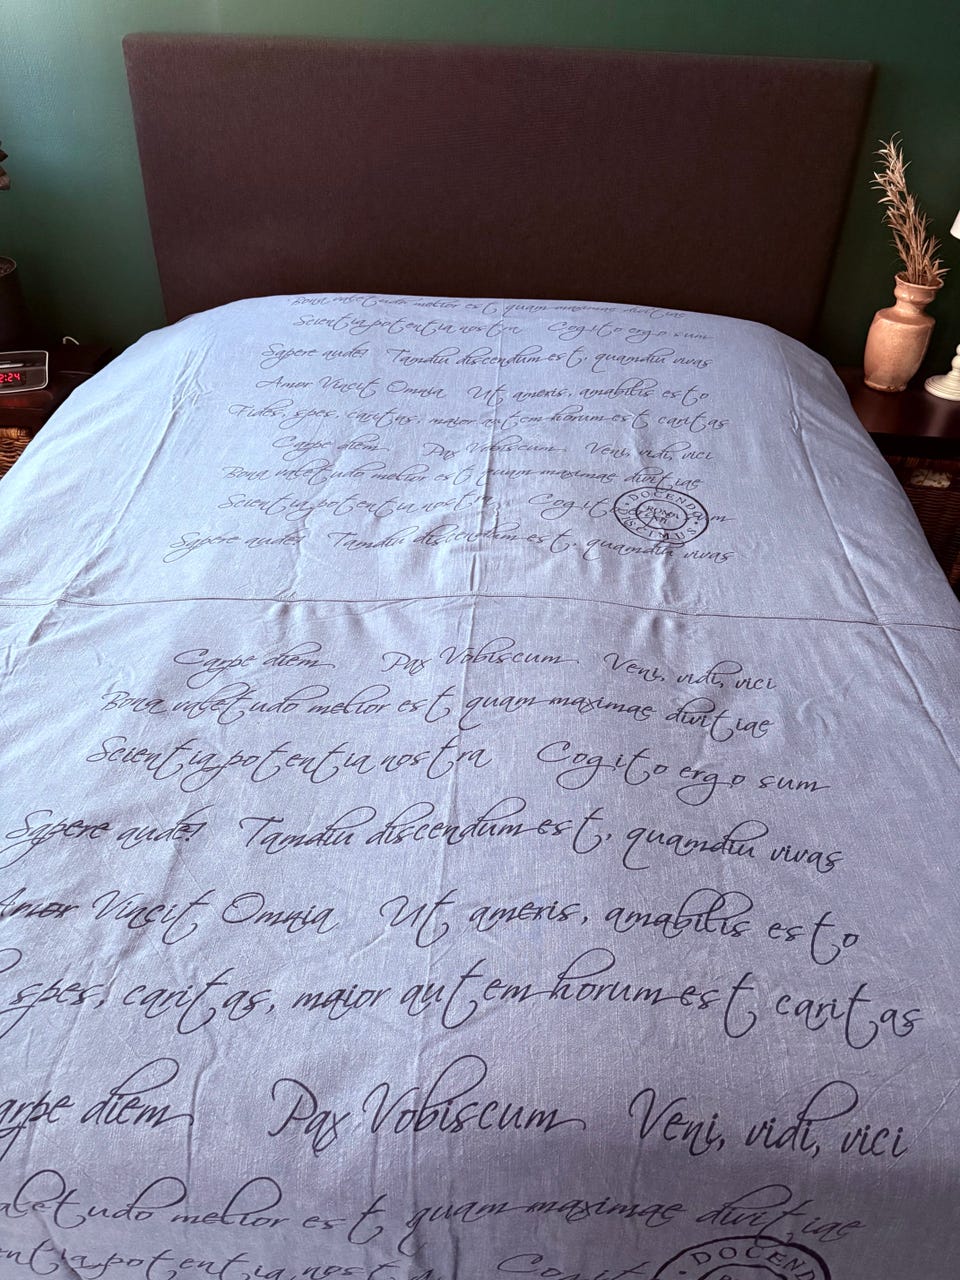 Bona valetudo melior est quam maximae divitiae
Scientia potentia nostra Cogito ergo sum
Sapere aude! Tamdiu discendum est, quamdiu vivas
Amor Vincit Omnia Ut ameris, amabilis esto
Fides, spes, caritas, maior autem horum est caritas
Carpe diem Pax Vobiscum Veni, vidi, vici
Bona valetudo melior est quam maximae divitiae
Scientia potentia nostra Cogit um
DOCENDO DISCIMUS
Sapere aude! Tamdiu discendum est, quamdiu vivas
Carpe diem Pax Vobiscum Veni, vidi, vici
Bona valetudo melior est quam maximae divitiae
Scientia potentia nostra Cogito ergo sum
Sapere aude! Tamdiu discendum est, quamdiu vivas
Amor Vincit Omnia Ut ameris, amabilis esto
spes, caritas, maior autem horum est caritas
arpe diem Pax Vobiscum Veni, vidi, vici
aletudo melior est quam maximae divitiae
entia potentia nost Cogit
DOCEND
2:24